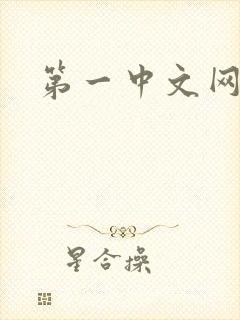 第一中文网
星合操